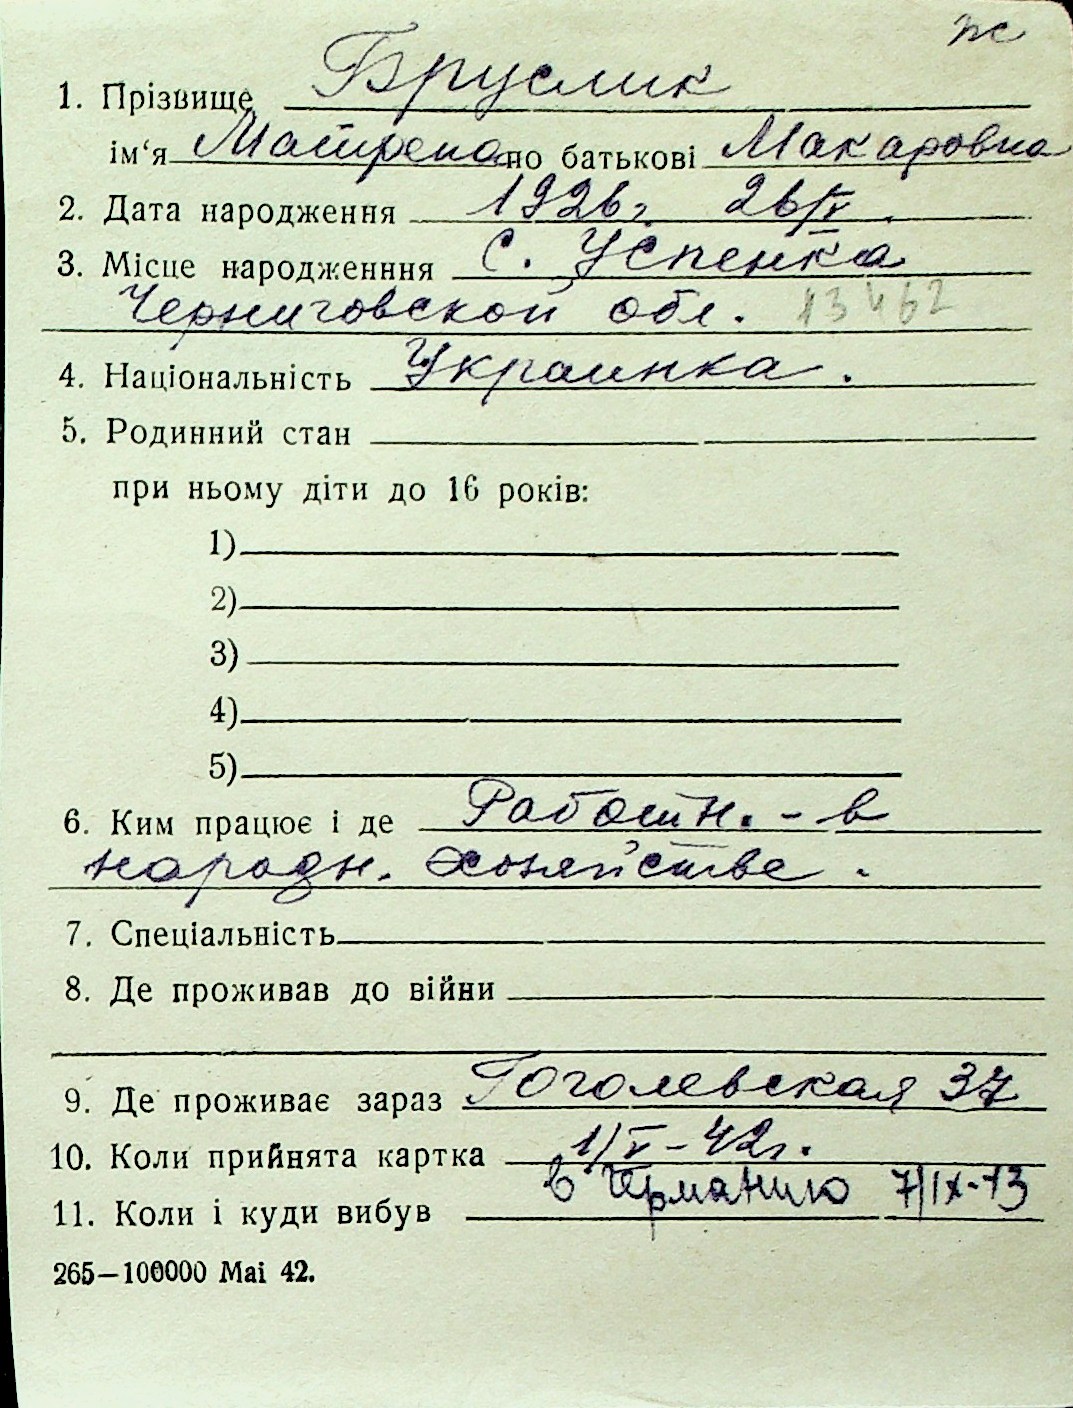 ж
1. Прізвище Бруслик
ім'я Матрена по батькові Макаровна
2. Дата народження 1926г. 26/V.
3. Місце народженння С. Успенка
Черниговской обл. 13462
4. Національність Украинка.
5. Родинний стан
при ньому діти до 16 років:
1)
2)
3)
4)
5)
6. Ким працює і де Работн. - в
народн. хозяйстве.
7. Спеціальність
8. Де проживав до війни
9. Де проживає зараз Гоголевская 37
10. Коли прийнята картка 1/V-42г.
11. Коли і куди вибув в Германию 7/IX-43
265—100000 Маі 42.